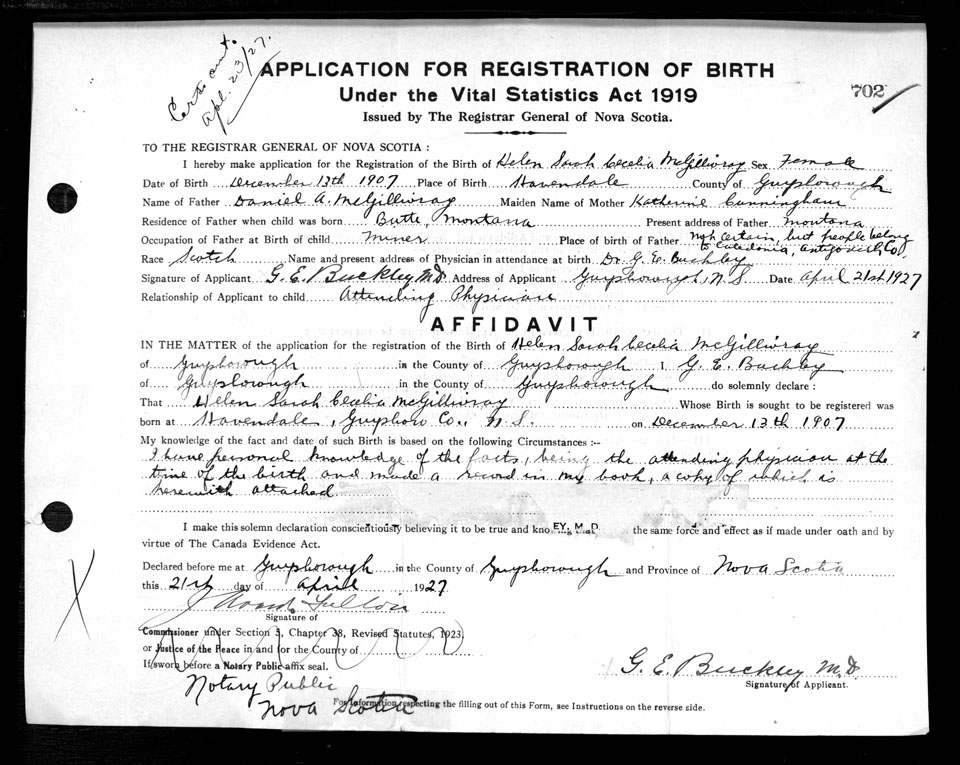 Certs out.
Apl. 23/27.
APPLICATION FOR REGISTRATION OF BIRTH
Under the Vital Statistics Act 1919
702
Issued by The Registrar General of Nova Scotia.
TO THE REGISTRAR GENERAL OF NOVA SCOTIA :
I hereby make application for the Registration of the Birth of Helen Sarah Cecelia McGillivray Sex Female
Date of Birth December 13th 1907 Place of Birth Havendale County of Guysborough
Name of Father Daniel A. McGillivray Maiden Name of Mother Katherine Cunningham
Residence of Father when child was born Butte, Montana Present address of Father Montana
Occupation of Father at Birth of child Miner Place of Birth of Father not certain, but people belong
to Caledonia, Antigonish Co.
Race Scotch Name and present address of Physician in attendance at birth Dr. G. E. Buckley
Signature of Applicant G. E. Buckley M.D. Address of Applicant Guysborough, N.S. Date April 21st 1927
Relationship of Applicant to child Attending Physician
AFFIDAVIT
IN THE MATTER of the application for the registration of the Birth of Helen Sarah Cecelia McGillivray
of Guysborough in the County of Guysborough I, G. E. Buckley
of Guysborough in the County of Guysborough do solemnly declare :
That Helen Sarah Cecelia McGillivray Whose Birth is sought to be registered was
born at Havendale, Guysboro Co., N.S. on December 13th 1907
My knowledge of the fact and date of such Birth is based on the following Circumstances :--
I have personal knowledge of the facts, being the attending physician at the
time of the birth and made a record in my book, a copy of which is
herewith attached
I make this solemn declaration conscientiously believing it to be true and knowing EY, M.D. the same force and effect as if made under oath and by
virtue of The Canada Evidence Act.
Declared before me at Guysborough in the County of Guysborough and Province of Nova Scotia
this 21st day of April 1927
Fulton
Signature of
Commissioner under Section 3, Chapter 38, Revised Statutes, 1923,
or Justice of the Peace in and for the County of
If sworn before a Notary Public affix seal.
G. E. Buckley M.D.
Signature of Applicant.
Notary Public
Nova Scotia
For information respecting the filling out of this Form, see Instructions on the reverse side.